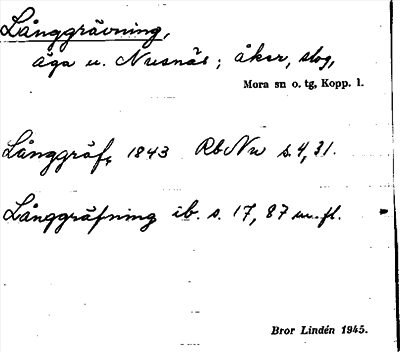 Långgrävning,
äga u. Nusnäs; åker, slog,
Mora sn o. tg, Kopp. l.
Långgräf, 1843 RbNu s. 4, 31.
Långgräfning ib. s. 17, 87 m. fl.
Bror Lindén 1945.